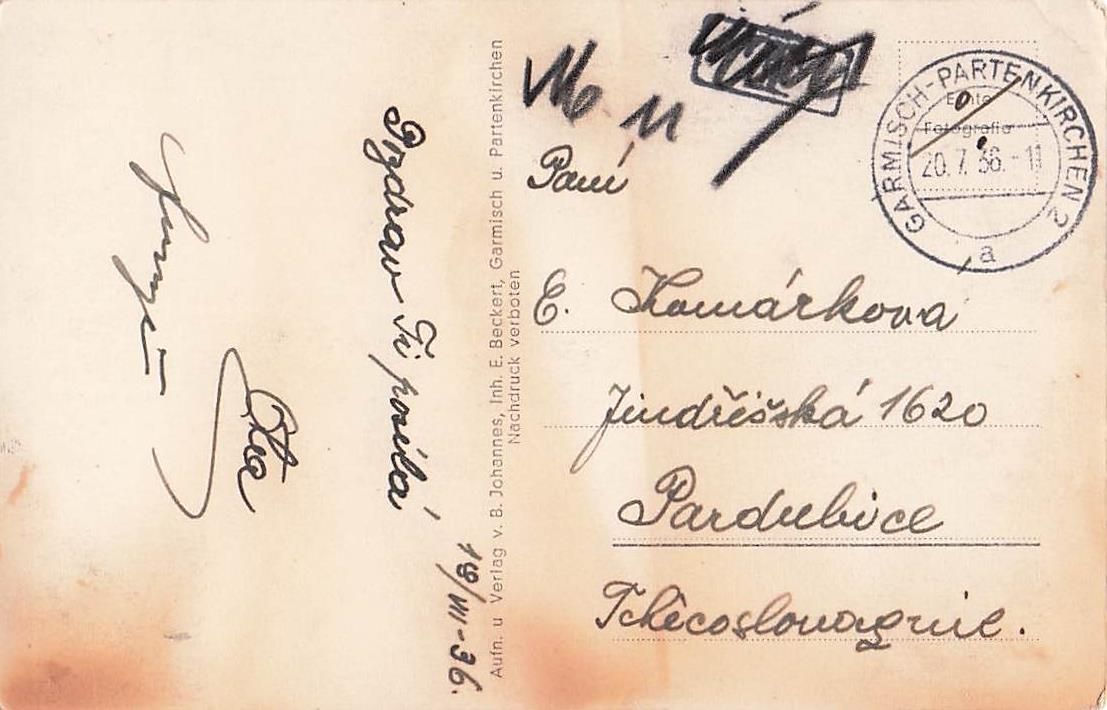 19/VII-36.
Pozdrav Ti posílá
Ota
Aufn. u Verlag v. B. Johannes, Inh. E. Beckert, Garmisch u. Partenkirchen
Nachdruck verboten
GARMISCH-PARTENKIRCHEN 2
Echte
Fotografie
20.7.36.-11
a
Paní
E. Komárkova
Jindřišská 1620
Pardubice
Tchécoslovaquie.